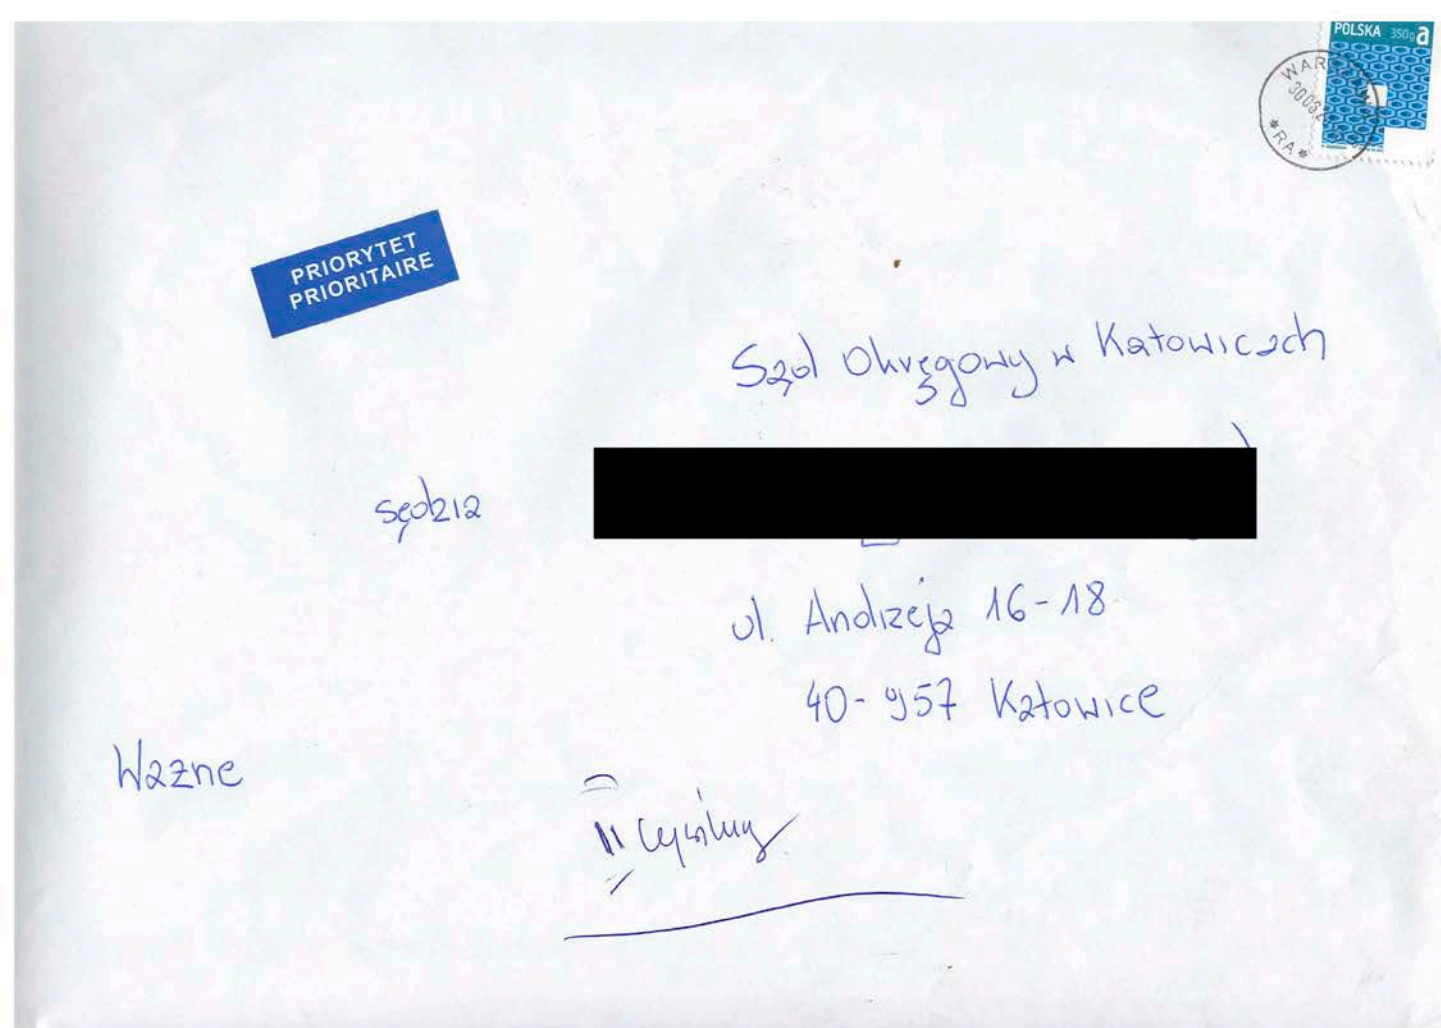 POLSKA 350g a
PRIORYTET
PRIORITAIRE
Sąd Okręgowy w Katowicach
sędzia
ul. Andrzeja 16-18
40-957 Katowice
Ważne
II Cywilny